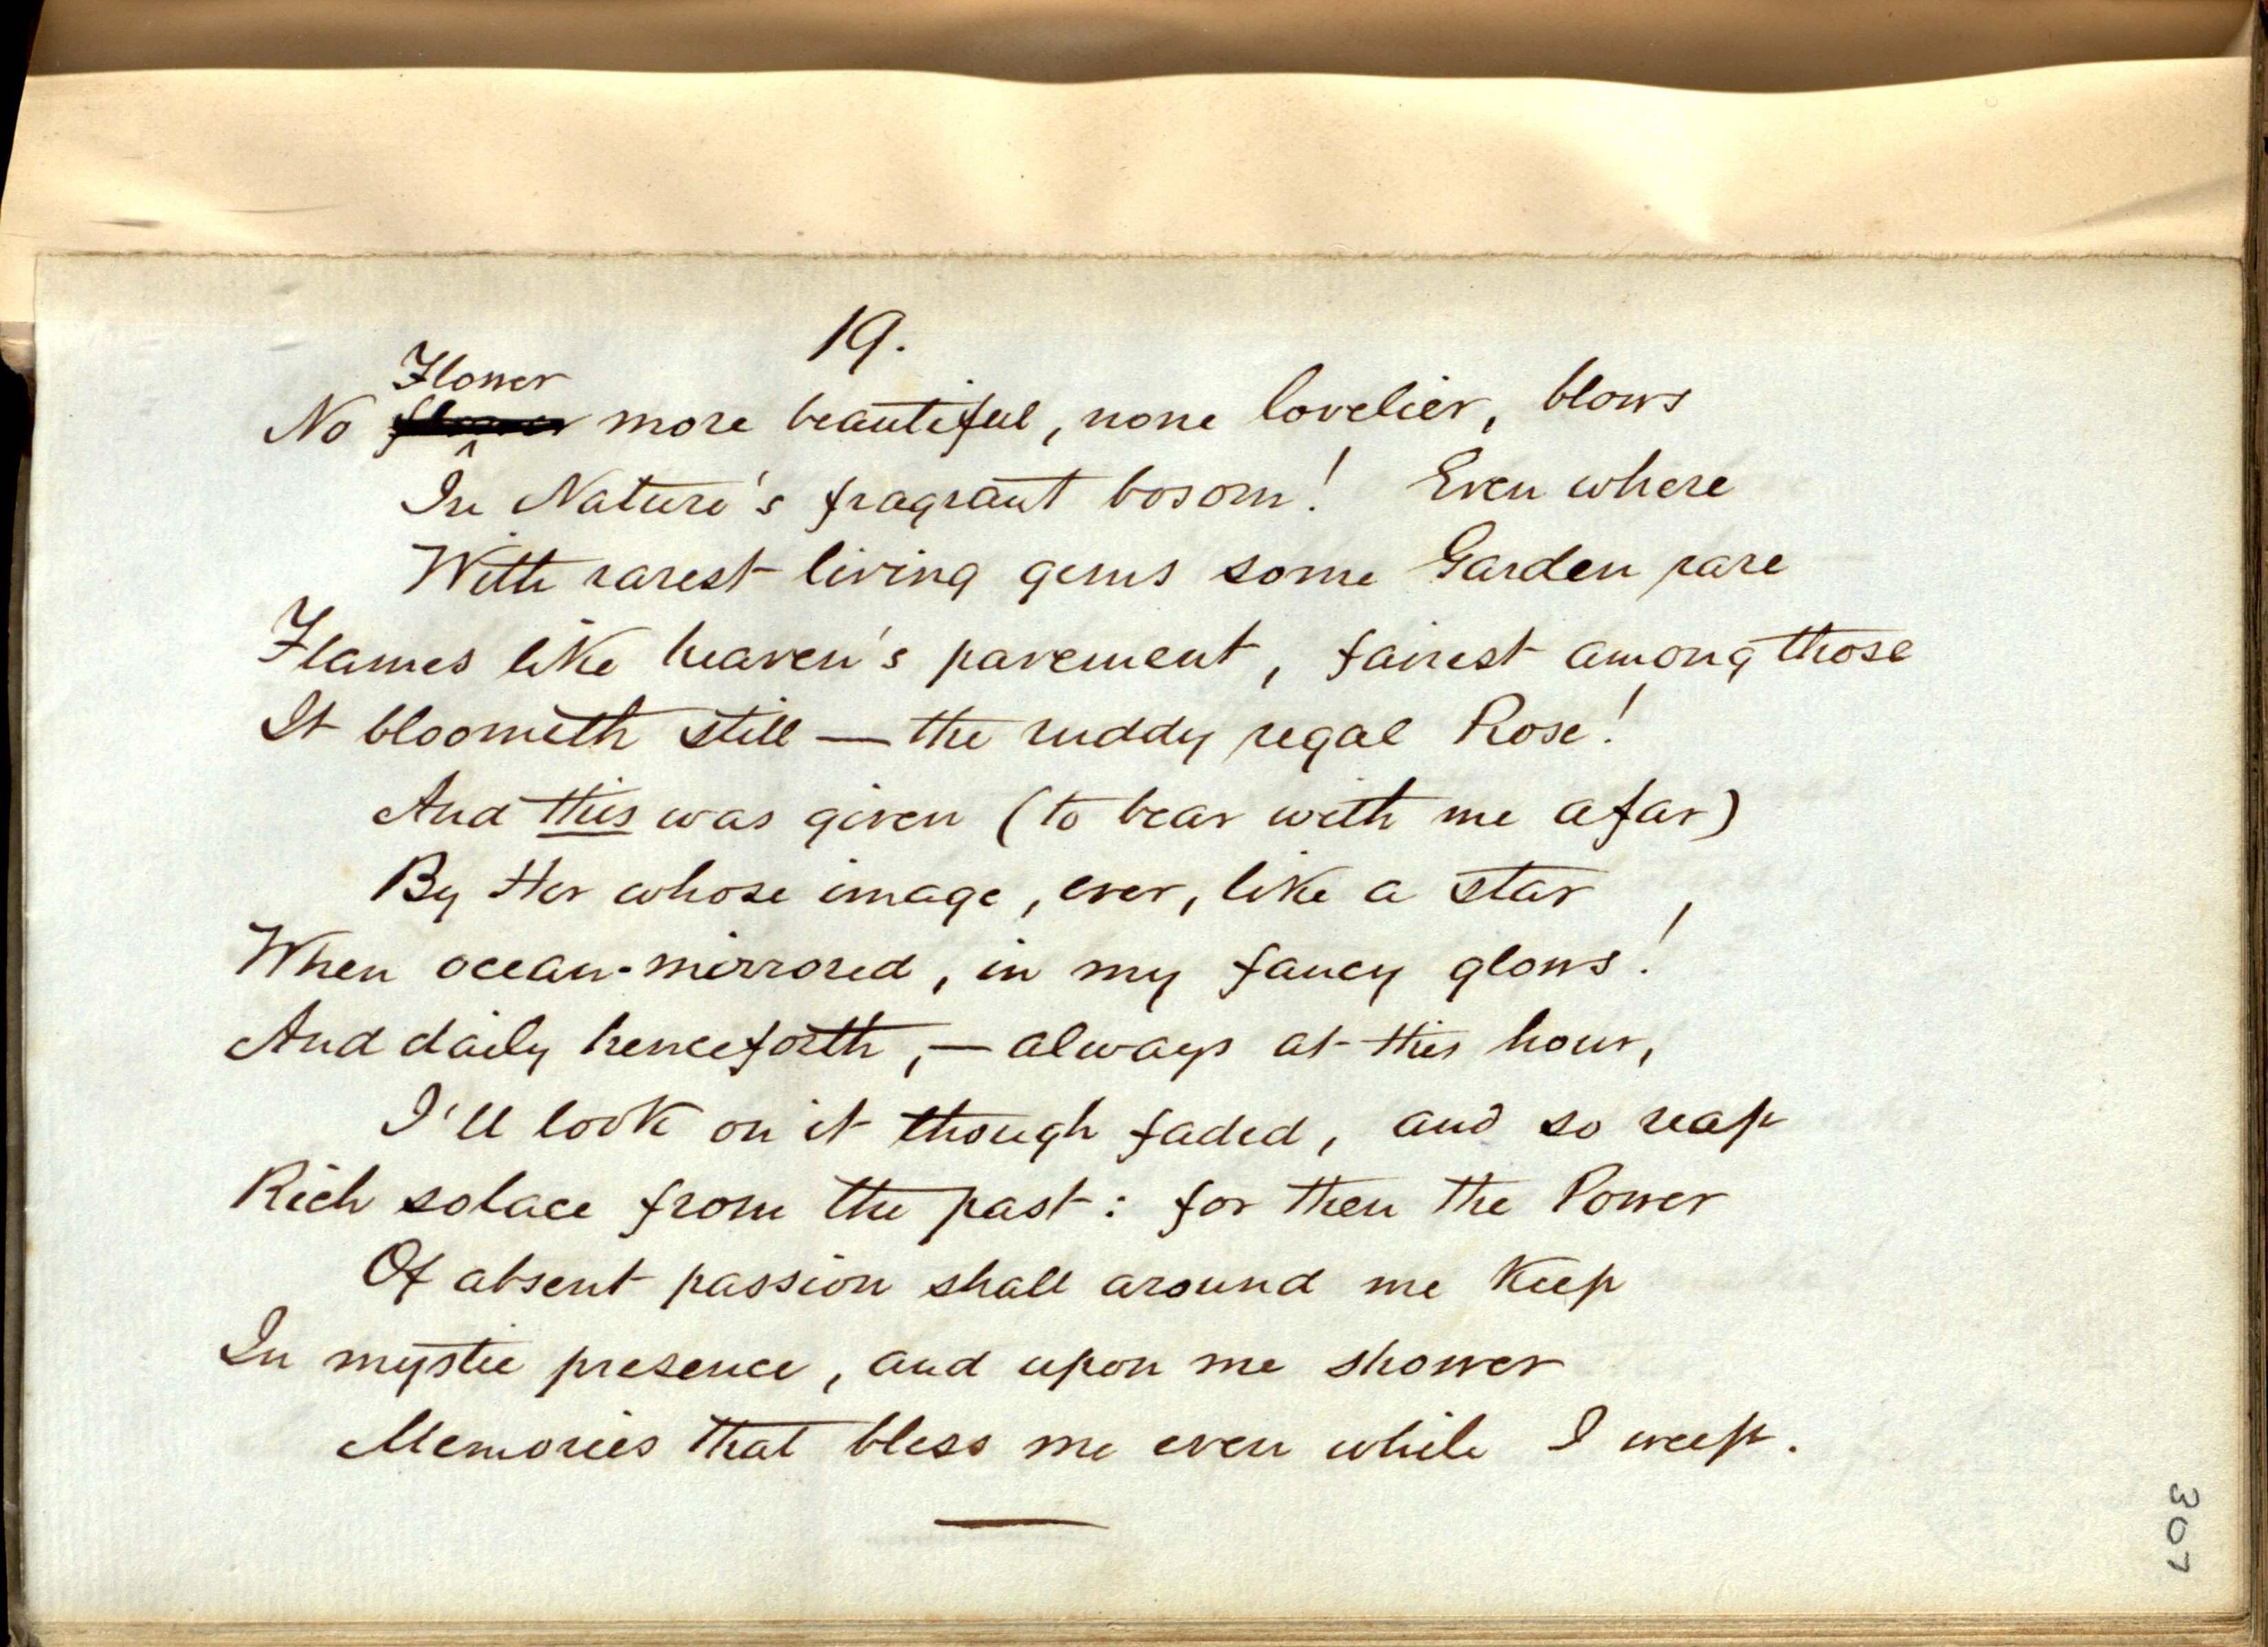 19.
Flower
No flower more beautiful, none lovelier, blows
In Nature's fragrant bosom! Even where
With rarest living gems some Garden rare
Flames like heaven's pavement, fairest among those
It bloometh still — the ruddy regal Rose!
And this was given (to bear with me afar)
By Her whose image, ever, like a star
When ocean-mirrored, in my fancy glows!
And daily henceforth, — always at this hour,
I'll look on it though faded, and so reap
Rich solace from the past: for then the Power
Of absent passion shall around me keep
In mystic presence, and upon me shower
Memories that bless me even while I weep.
307